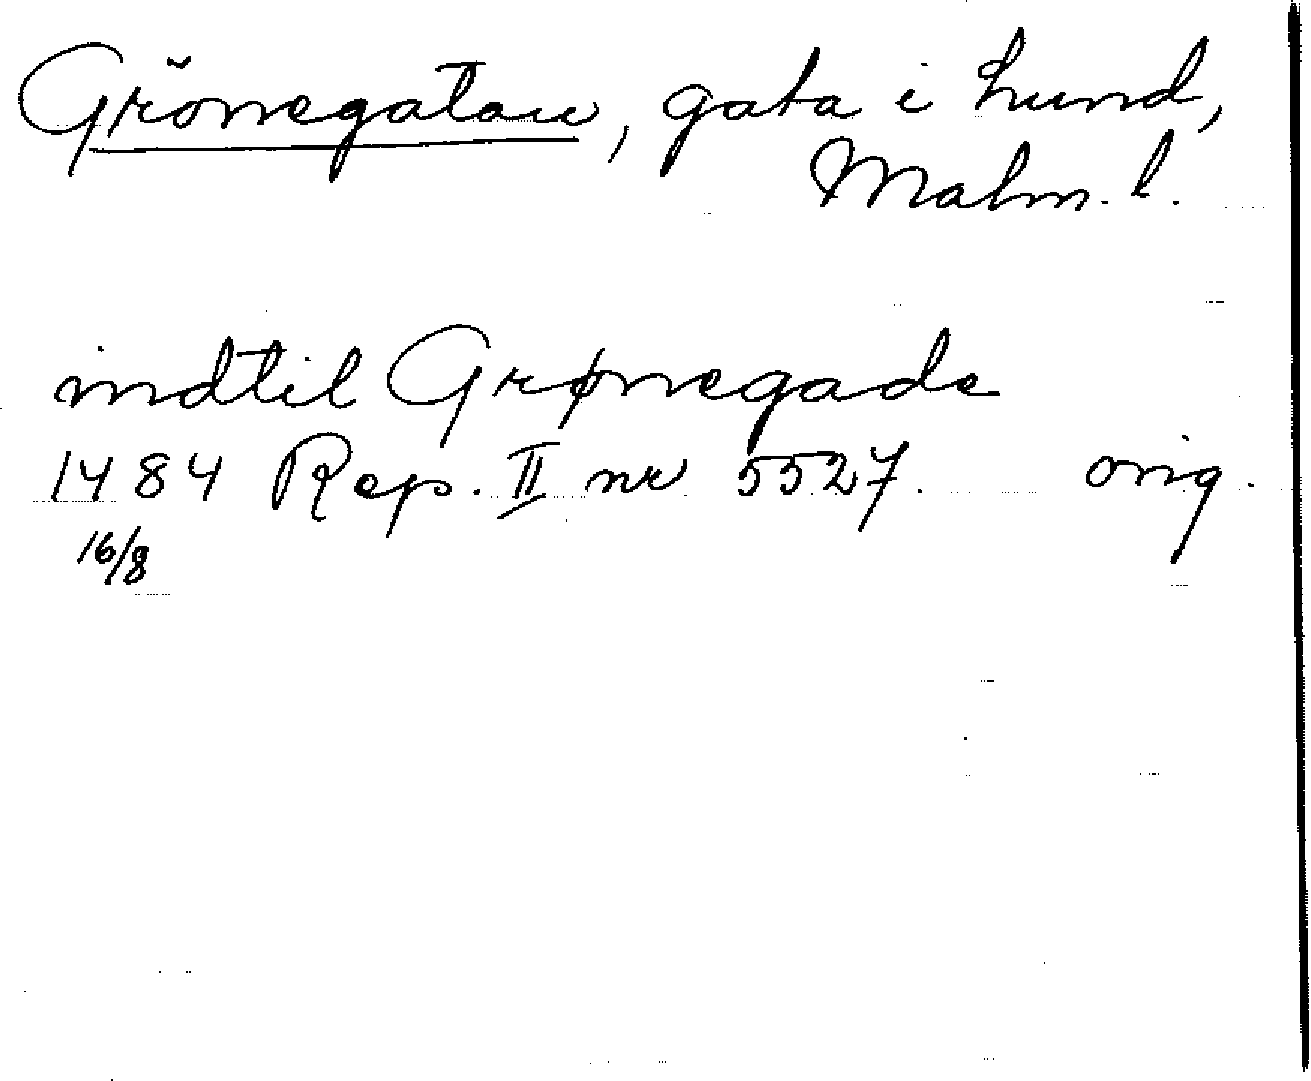 Grönegatan, gata i Lund,
Malm. l.
indtil Grønegade
1484 Rep. II nr 5527. orig.
16/8